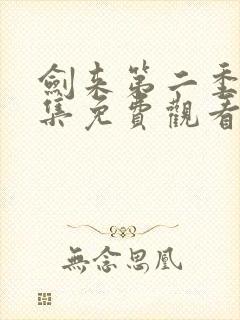 劍来第二季
集免費觀看
無念思凰